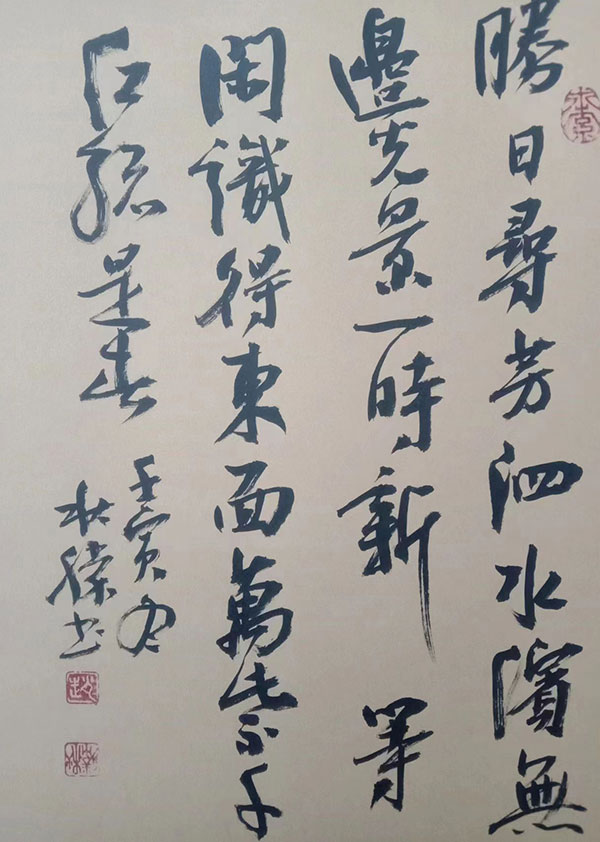 勝日尋芳泗水濱無
邊光景一時新 等
閑識得東面萬紫千
紅總是春
壬寅冬
秋书